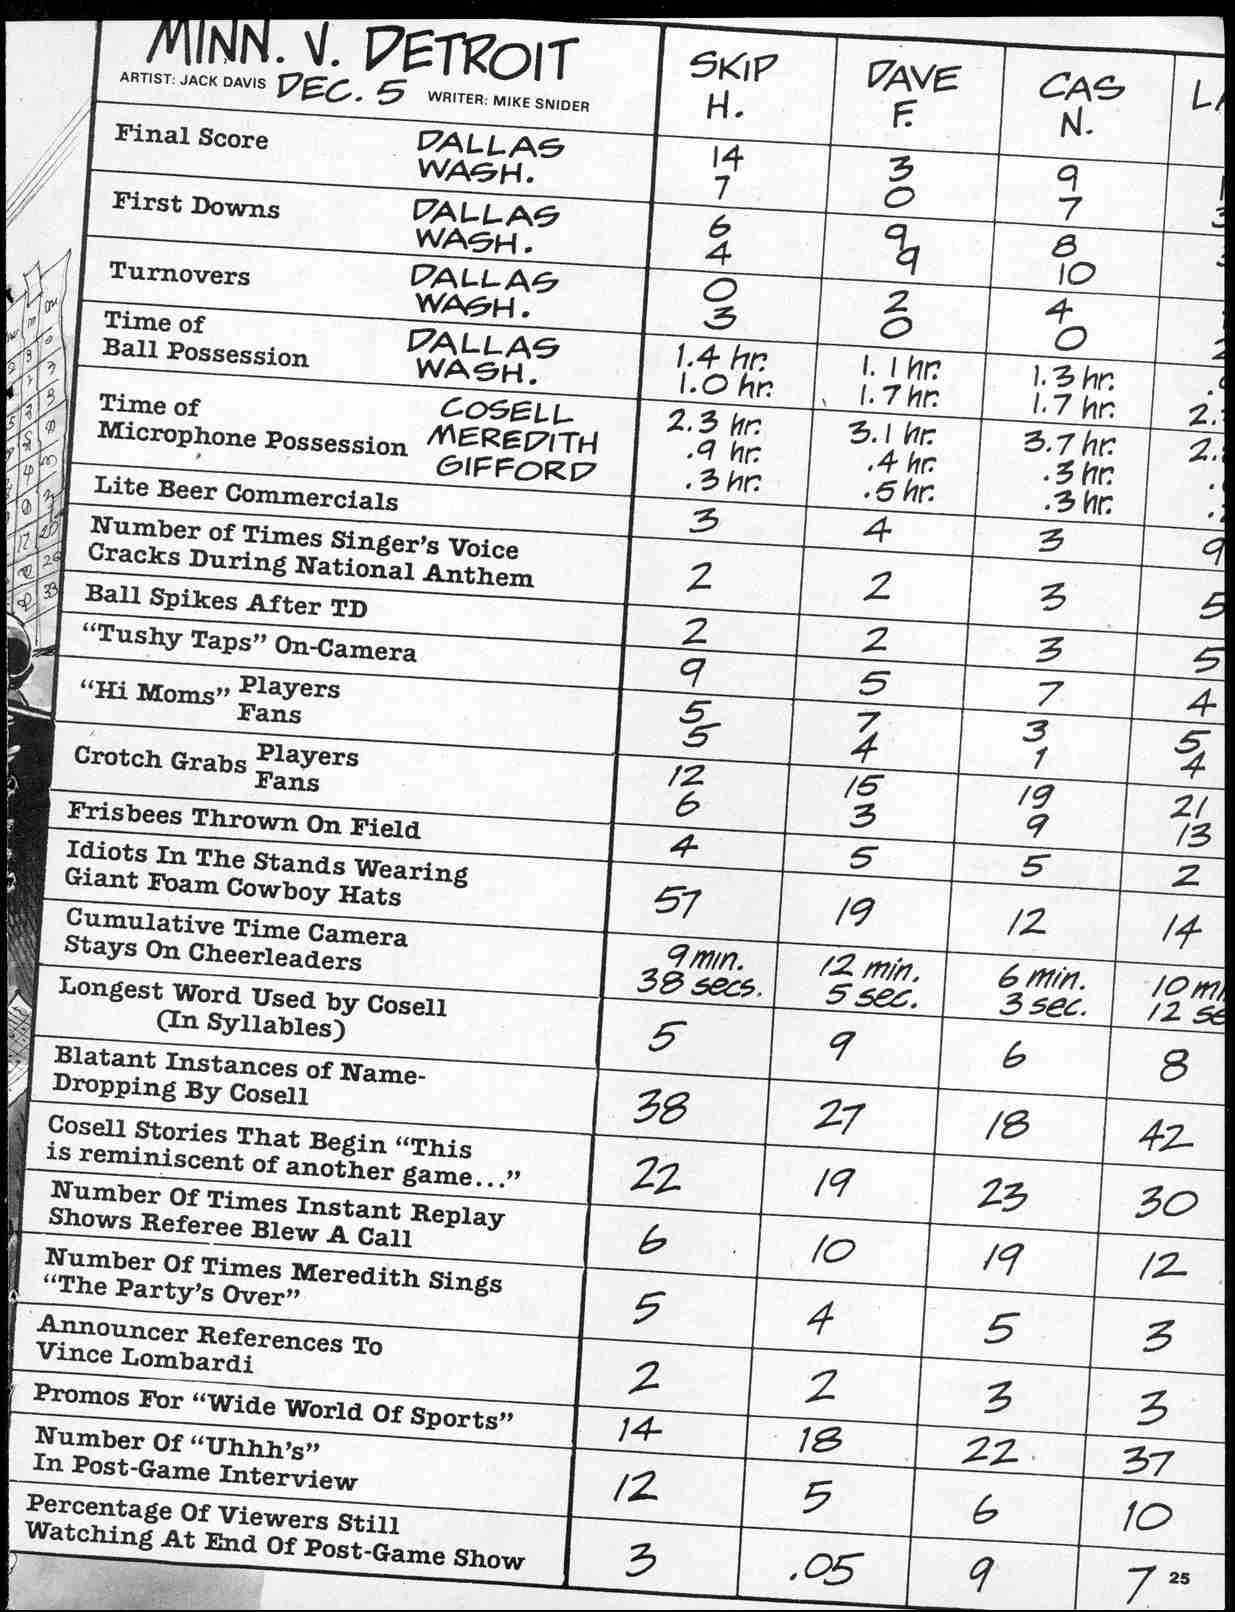 MINN. V. DETROIT
ARTIST: JACK DAVIS DEC. 5 WRITER: MIKE SNIDER
SKIP H. DAVE F. CAS N.
Final Score DALLAS 14 3 9
WASH. 7 0 7
First Downs DALLAS 6 9 8
WASH. 4 9 10
Turnovers DALLAS 0 2 4
WASH. 3 0 0
Time of
Ball Possession DALLAS 1.4 hr. 1.1 hr. 1.3 hr.
WASH. 1.0 hr. 1.7 hr. 1.7 hr.
Time of
Microphone Possession COSELL 2.3 hr. 3.1 hr. 3.7 hr.
MEREDITH .9 hr. .4 hr. .3 hr.
GIFFORD .3 hr. .5 hr. .3 hr.
Lite Beer Commercials 3 4 3 9
Number of Times Singer's Voice
Cracks During National Anthem 2 2 3 5
Ball Spikes After TD 2 2 3 5
"Tushy Taps" On-Camera 9 5 7 4
"Hi Moms" Players 5 7 3 5
Fans 5 4 1 4
Crotch Grabs Players 12 15 19 21
Fans 6 3 9 13
Frisbees Thrown On Field 4 5 5 2
Idiots In The Stands Wearing
Giant Foam Cowboy Hats 57 19 12 14
Cumulative Time Camera 9 min. 12 min. 6 min. 10
Stays On Cheerleaders 38 secs. 5 sec. 3 sec. 12
Longest Word Used by Cosell
(In Syllables) 5 9 6 8
Blatant Instances of Name-
Dropping By Cosell 38 27 18 42
Cosell Stories That Begin "This
is reminiscent of another game..." 22 19 23 30
Number Of Times Instant Replay
Shows Referee Blew A Call 6 10 19 12
Number Of Times Meredith Sings
"The Party's Over" 5 4 5 3
Announcer References To
Vince Lombardi 2 2 3 3
Promos For "Wide World Of Sports" 14 18 22 37
Number Of "Uhhh's"
In Post-Game Interview 12 5 6 10
Percentage Of Viewers Still
Watching At End Of Post-Game Show 3 .05 9 7
25